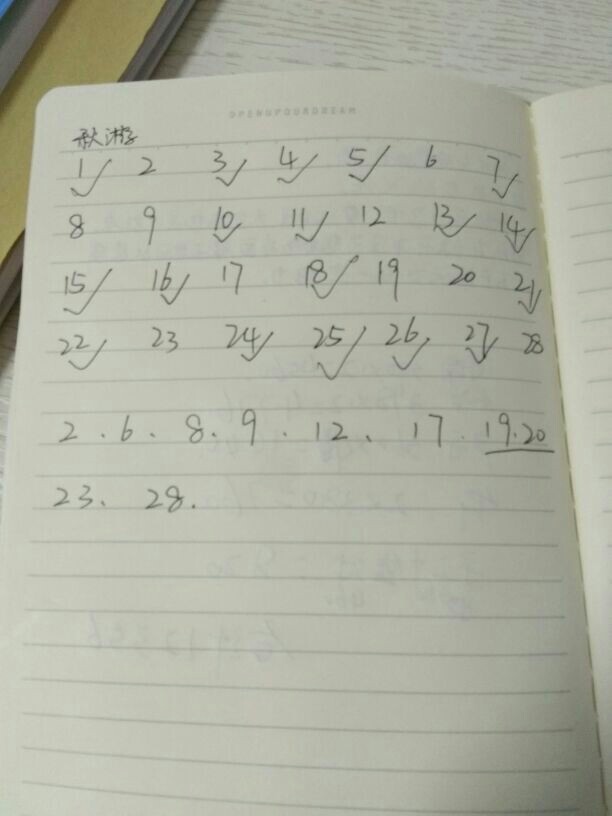 OPENUPYOURDREAM
秋游
1✓ 2 3✓ 4✓ 5✓ 6 7✓
8 9 10✓ 11✓ 12 13✓ 14✓
15✓ 16✓ 17 18✓ 19 20 21✓
22✓ 23 24✓ 25✓ 26✓ 27✓ 28
2. 6. 8. 9. 12. 17. 19.20
23. 28.